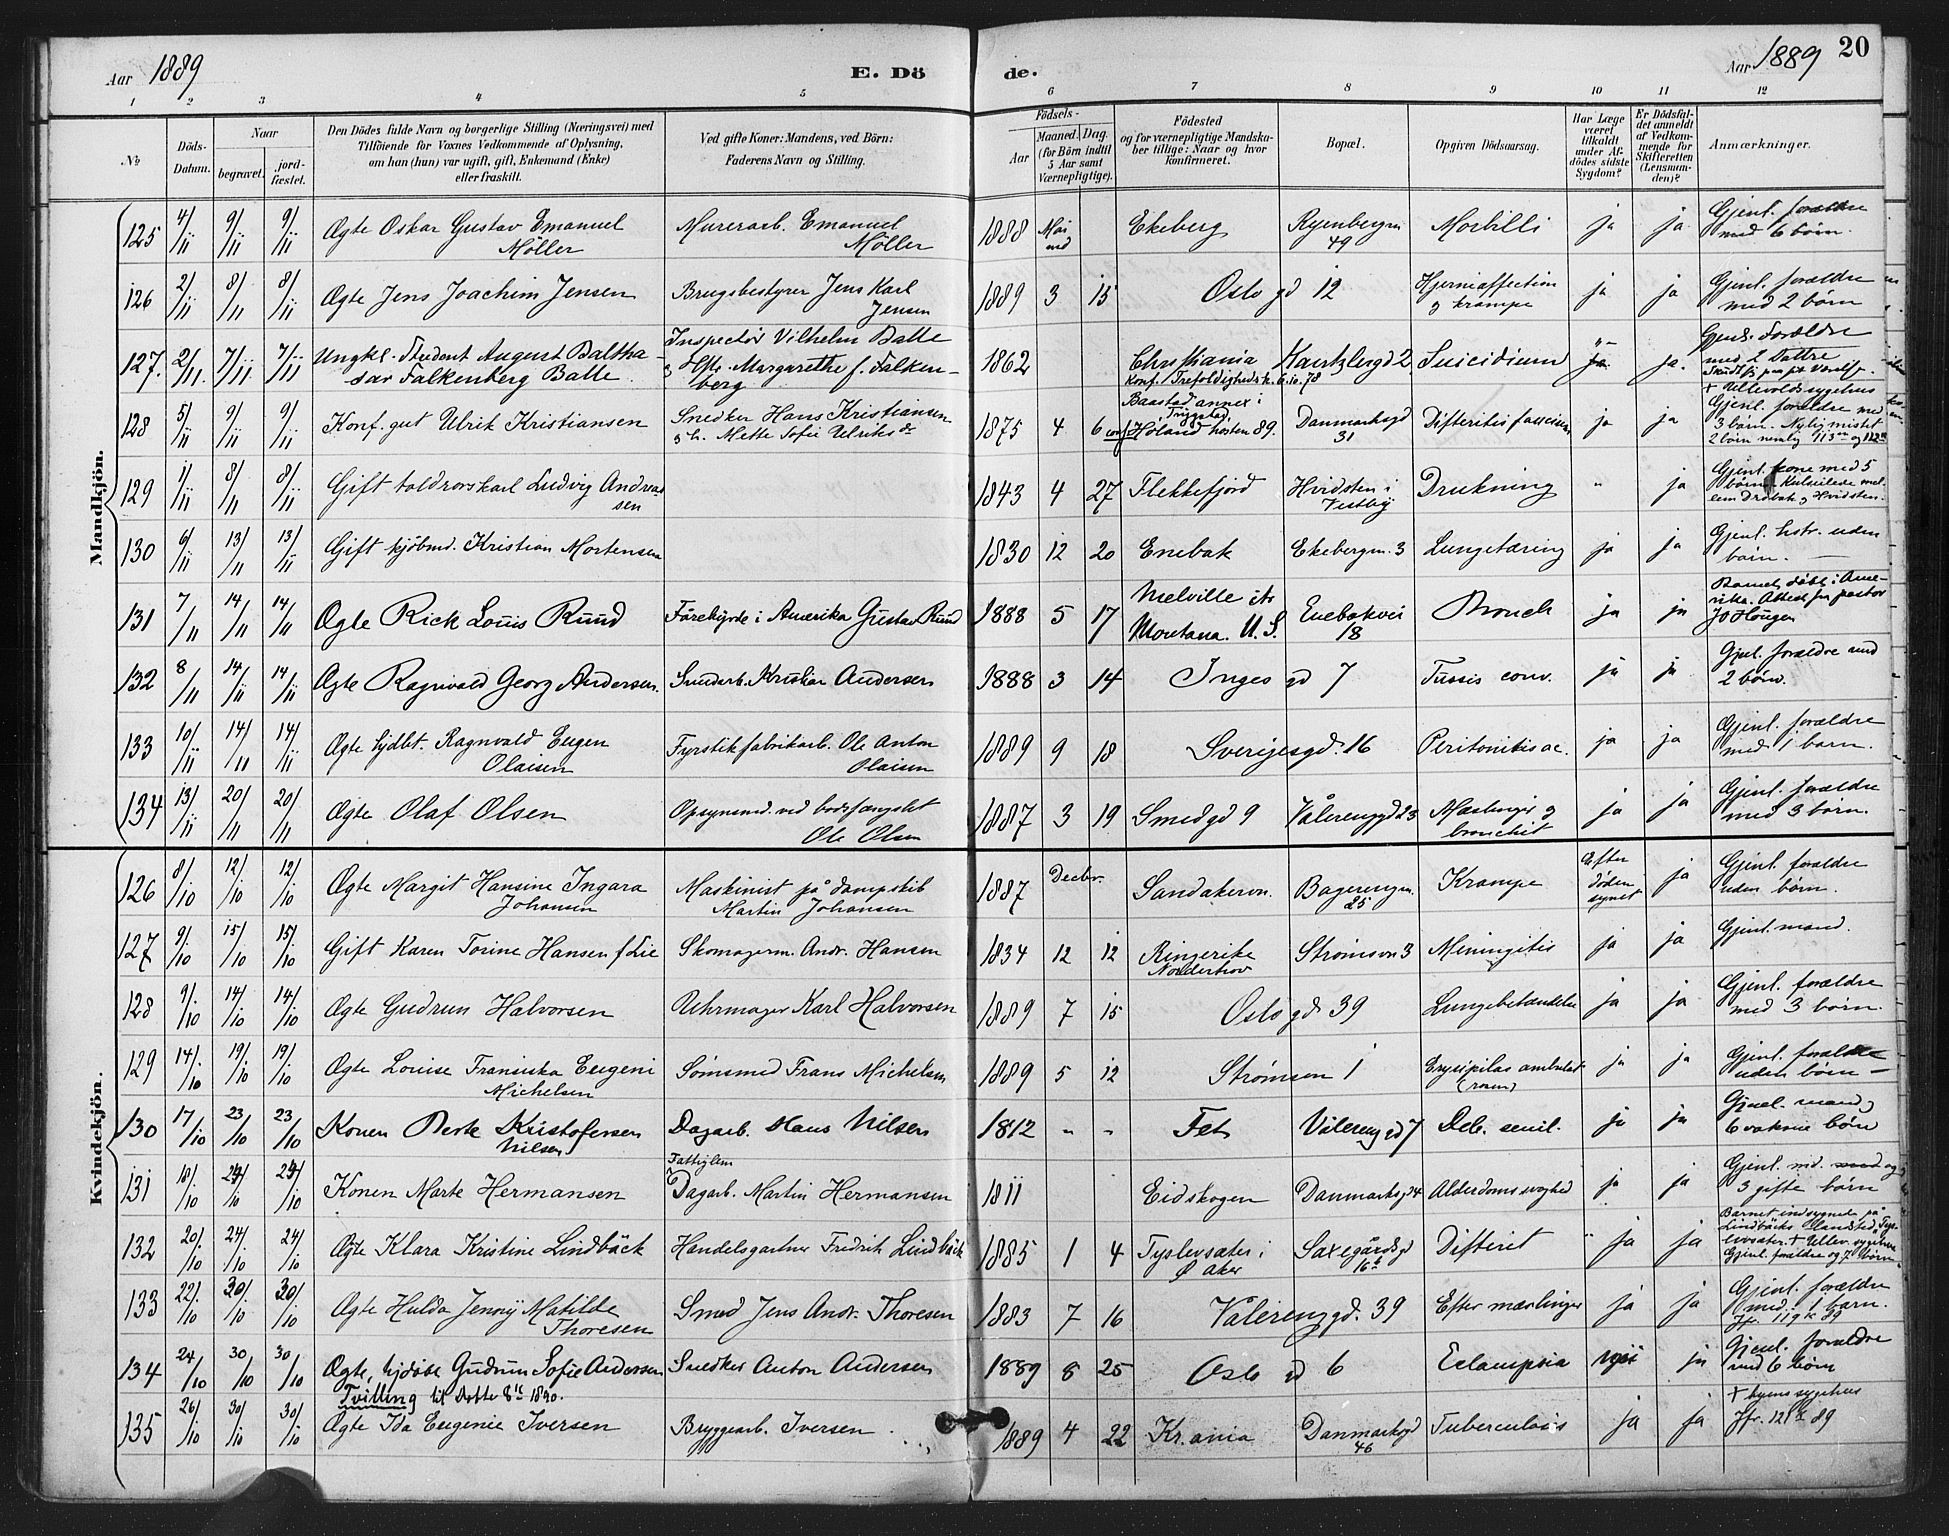 Aar 1889
E. Döde.
Aar 1889
20
1 2 3 4 5 6 7 8 9 10 11 12
№
Döds-Datum.
Naar
begravet.
jordfæstet.
Den Dödes fulde Navn og borgerlige Stilling (Næringsvei) med
Tilföiende for Voxnes Vedkommende af Oplysning,
om han (hun) var ugift, gift, Enkemand (Enke)
eller fraskilt.
Ved gifte Koner: Mandens, ved Börn:
Faderens Navn og Stilling.
Födsels-
Aar
Maaned. Dag.
(for Börn indtil
5 Aar samt
Værnepligtige).
Födested
og for værnepligtige Mandskaber tillige: Naar og hvor
konfirmeret.
Bopæl.
Opgiven Dödsaarsag.
Har Læge
været
tilkaldt
under Afdödes sidste
Sygdom?
Er Dödsfaldet anmeldt
af Vedkommende for
Skifteretten
(Lensmanden)?
Anmærkninger.
Mandkjön.
125 4/11 9/11 9/11 Ægte Oskar Gustav Emanuel Möller Murerarb. Emanuel Möller 1888 Mai Ekeberg Ryenbergvn 49 Morbilli ja ja Gjenl. forældre med 6 börn.
126 2/11 8/11 8/11 Ægte Jens Joachim Jensen Brugsbestyrer Jens Karl Jensen 1889 3 15 Oslo gd 12 Hjerneaffection og krampe ja ja Gjenl. forældre med 2 börn
127. 2/11. 7/11 7/11 Ungkl. Student August Balthasar Falkenberg Batte Inspectör Vilhelm Batte og Hstr. Margarethe f. Falkenberg 1862 Christiania Konf. i Trefoldighedsk. 6.10.78 Kantzlergd 2 Suicidium ja. Gjenl. Forældre med 2 Döttre
128 5/11 9/11 9/11 Konf. gut Ulrik Kristiansen Snedker Hans Kristiansen og h. Mette Sofie Ulriksdr 1875 4 6 Baastad annex i Trygstad, conf. Höland hösten 89. Danmarksgd 31 Difteritis faucium ja ja + Ullevolds sygehus Gjenl. forældre med 3 börn. Nylig mistet 2 börn nemlig 113 og 122
129 1/11 8/11 8/11 Gift toldrorskarl Ludvig Andreassen 1843 4 27 Flekkefjord Hvidsten i Vestby Drukning " ja Gjenl. kone med 5 börn. Kulseilede mellem Dröbak og Hvidsten.
130 6/11 13/11 13/11 Gift kjöbmd. Kristian Mortensen 1830 12 20 Enebak Ekebergvn. 3 Lungetæring ja ja Gjenl. hstr. uden börn.
131 7/11 14/11 14/11 Ægte Rick Louis Ruud Farekyrde i Amerika Gustav Ruud 1888 5 17 Melville Montana. U. S. Enebakvei 18 Bronch ja ja Barnet döbt i Amerika. Attest fra pastor J O Hougen
132 8/11 14/11 14/11 Ægte Ragnvald Georg Andersen. Smedarb. Kristian Andersen 1888 3 14 Inges gd 7 Tussis conv. ja ja Gjenl. forældre med 2 börn.
133 10/11 14/11 14/11 Ægte hjdbt. Ragnvald Eugen Olaisen Fyrstikfabrikarb. Ole Anton Olaisen 1889 9 18 Sverigesgd. 16 Peritonitis ac. ja ja Gjenl. forældre med 1 barn.
134 13/11 20/11 20/11 Ægte Olaf Olsen Opsynsmd. ved bodsfængslet Ole Olsen 1887 3 19 Smedgd 9 Vålerenggd 23 Mæslinger og bronchit ja ja Gjenl. forældre med 3 börn.
Kvindekjön.
126 8/10 12/10 12/10 Ægte Margit Hansine Ingara Johansen Maskinist på dampskib Martin Johansen 1887 Decbr. Sandakervn. Bagerengvn. 25 Krampe Efter döden synet ja Gjenl. forældre uden börn.
127 9/10 15/10 15/10 Gift Karen Torine Hansen f Lie Skomagerm. Andr. Hansen 1834 12 12 Ringerike Norderhov Strömsvn 3 Meningitis ja ja Gjenl. mand.
128 9/10 14/10 14/10 Ægte Gudrun Halvorsen Uhrmager Karl Halvorsen 1889 7 15 Oslo gd 39 Lungebetændelse ja ja Gjenl. forældre med 3 börn.
129 14/10 19/10 19/10 Ægte Louise Fransiska Eugeni Michelsen Sömsmed Frans Michelsen 1889 5 12 Strömsvn 1 Erysipilas ambulat (rosen) ja ja Gjenl. forældre uden börn
130 17/10 23/10 23/10 Konen Berte Kristofersen Nilsen Dagarb. Hans Nilsen 1812 " " Fet Vålerenggd 7 Deb. senil. ja ja Gjenl. mand og 6 voksne börn
131 18/10 24/10 24/10 Konen Marte Hermansen Fattiglem Dagarb. Martin Hermansen 1811 Eidskogen Danmarksgd 4 Alderdomssvaghed ja ja Gjenl. md. og 3 gifte börn
132 20/10 24/10 24/10 Ægte Klara Kristine Lindbäck Handelsgartner Fredrik Lindbäck 1885 1 4 Tyslevsæter i Ø Aker Saxegårdsgd 16 Difterit " ja ja Barnet indsygnet på Lindbäcks landsted, Tyslevsæter. + Ullev. sygehus Gjenl. forældre og 7 börn
133 22/10 30/10 30/10 Ægte Hulda Jenny Matilde Thoresen Smed Jens Andr. Thoresen 1883 7 16 Vålerenggd. 39 Efter mæslinger ja ja Gjenl. forældre med 1 barn. Jfr. 119 k 89
134 24/10 30/10 30/10 Ægte, hjdöbt Gudrun Sofie Andersen Tvilling til Dette 8 k 1890. Snedker Anton Andersen 1889 8 25 Oslo gd 6 Eclampsia nei ja Gjenl. forældre med 6 börn
135 26/10 30/10 30/10 Ægte Ida Eugenie Iversen Bryggearb. Iversen 1889 4 22 Kr.ania Danmarksgd 46 Tuberculosis ja ja + byens sygehus Jfr. 121 k 89